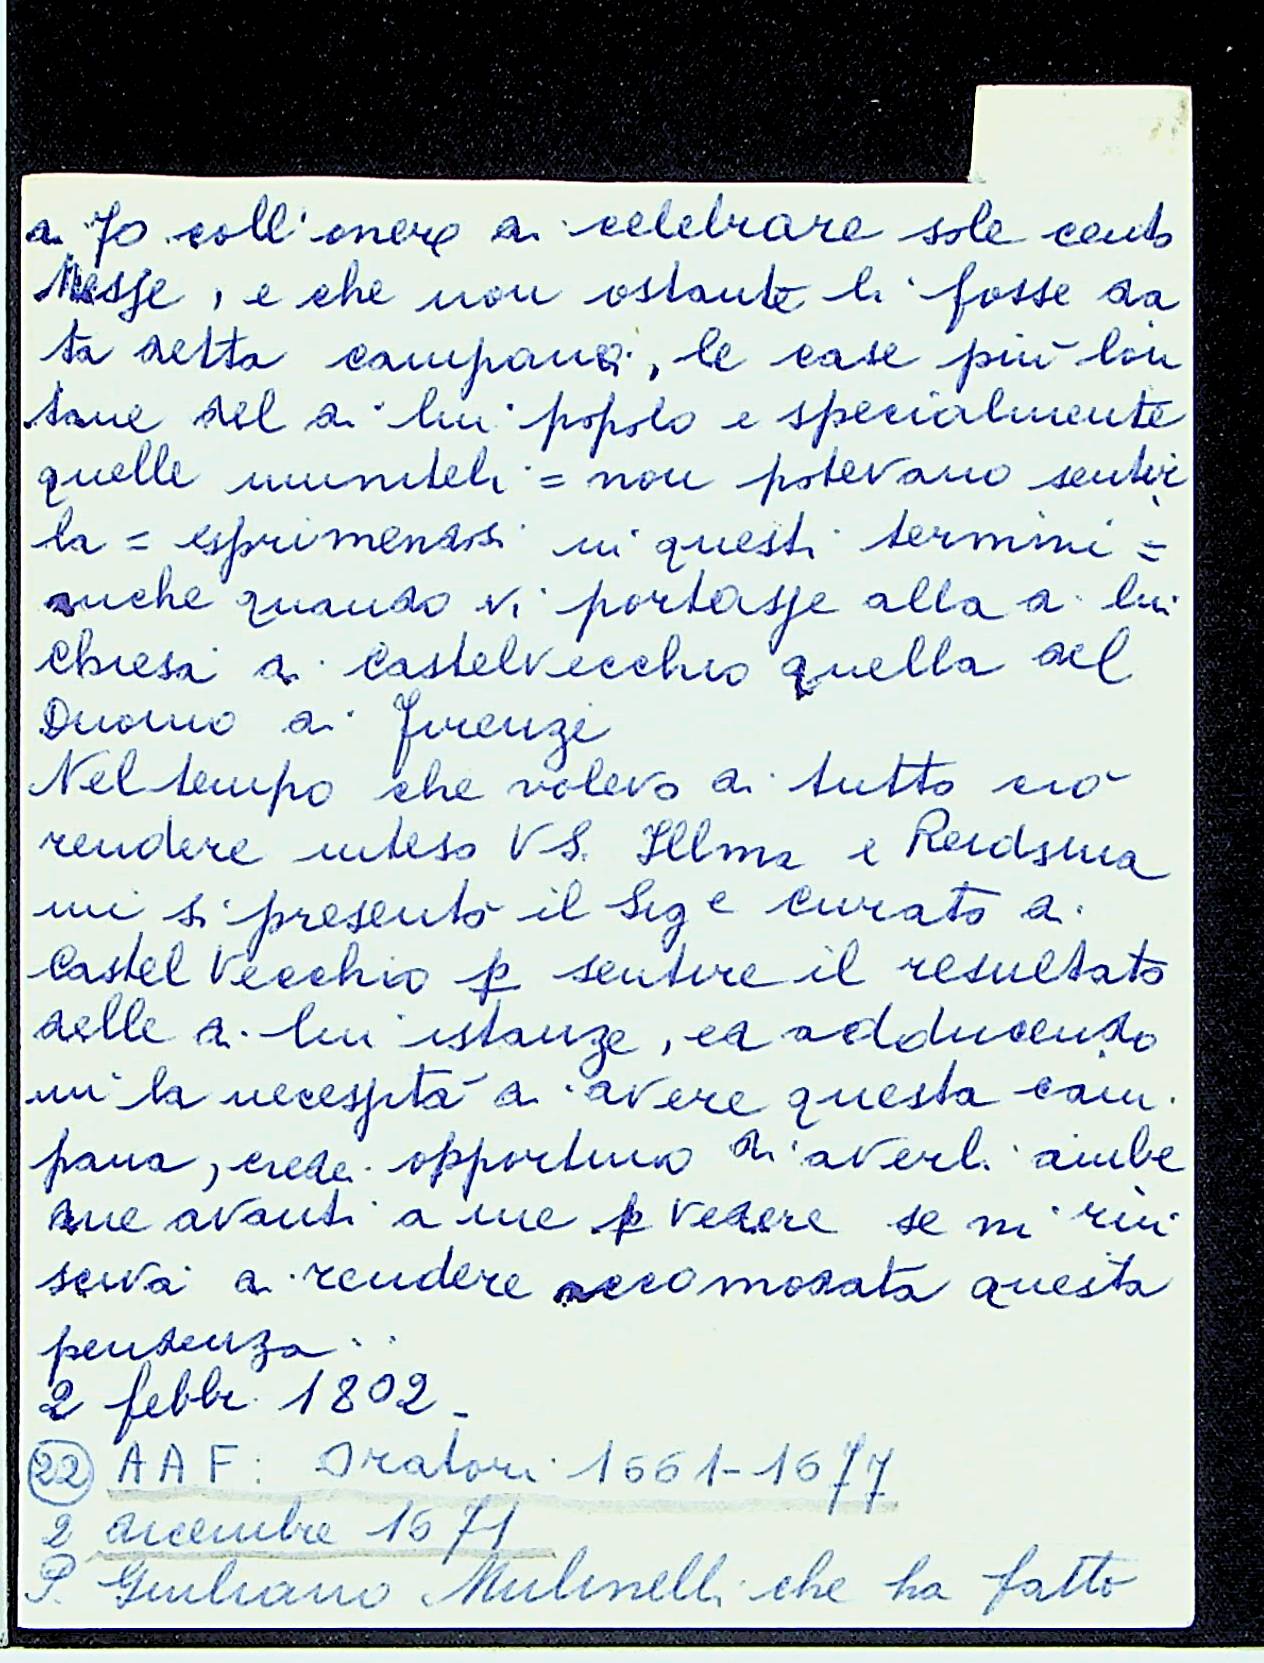 di 70 coll'onere di celebrare sole cento
Messe, e che non ostante li fosse da
ta detta campana, le case più lon
tane del di lui popolo e specialmente
quelle = non potevano sentir
la = esprimendosi in questi termini =
anche quando vi portasse alla di lui
chiesa di Castelvecchio quella del
Duomo di Firenze
Nel tempo che volevo di tutto ciò
rendere inteso VS. Illma e Revdsma
mi si presentò il Sige Curato di
Castel Vecchio p sentire il resultato
delle di lui istanze, ed adducendo
mi la necessità di avere questa cam.
pana, credei opportuno di averli ambe
due avanti a me p vedere se mi riu
sciva di rendere accomodata questa
pendenza..
2 febbr. 1802_
(22) AAF: Oratori 1661-1677
2 dicembre 1671
P. Giuliano Mulinelli che ha fatto